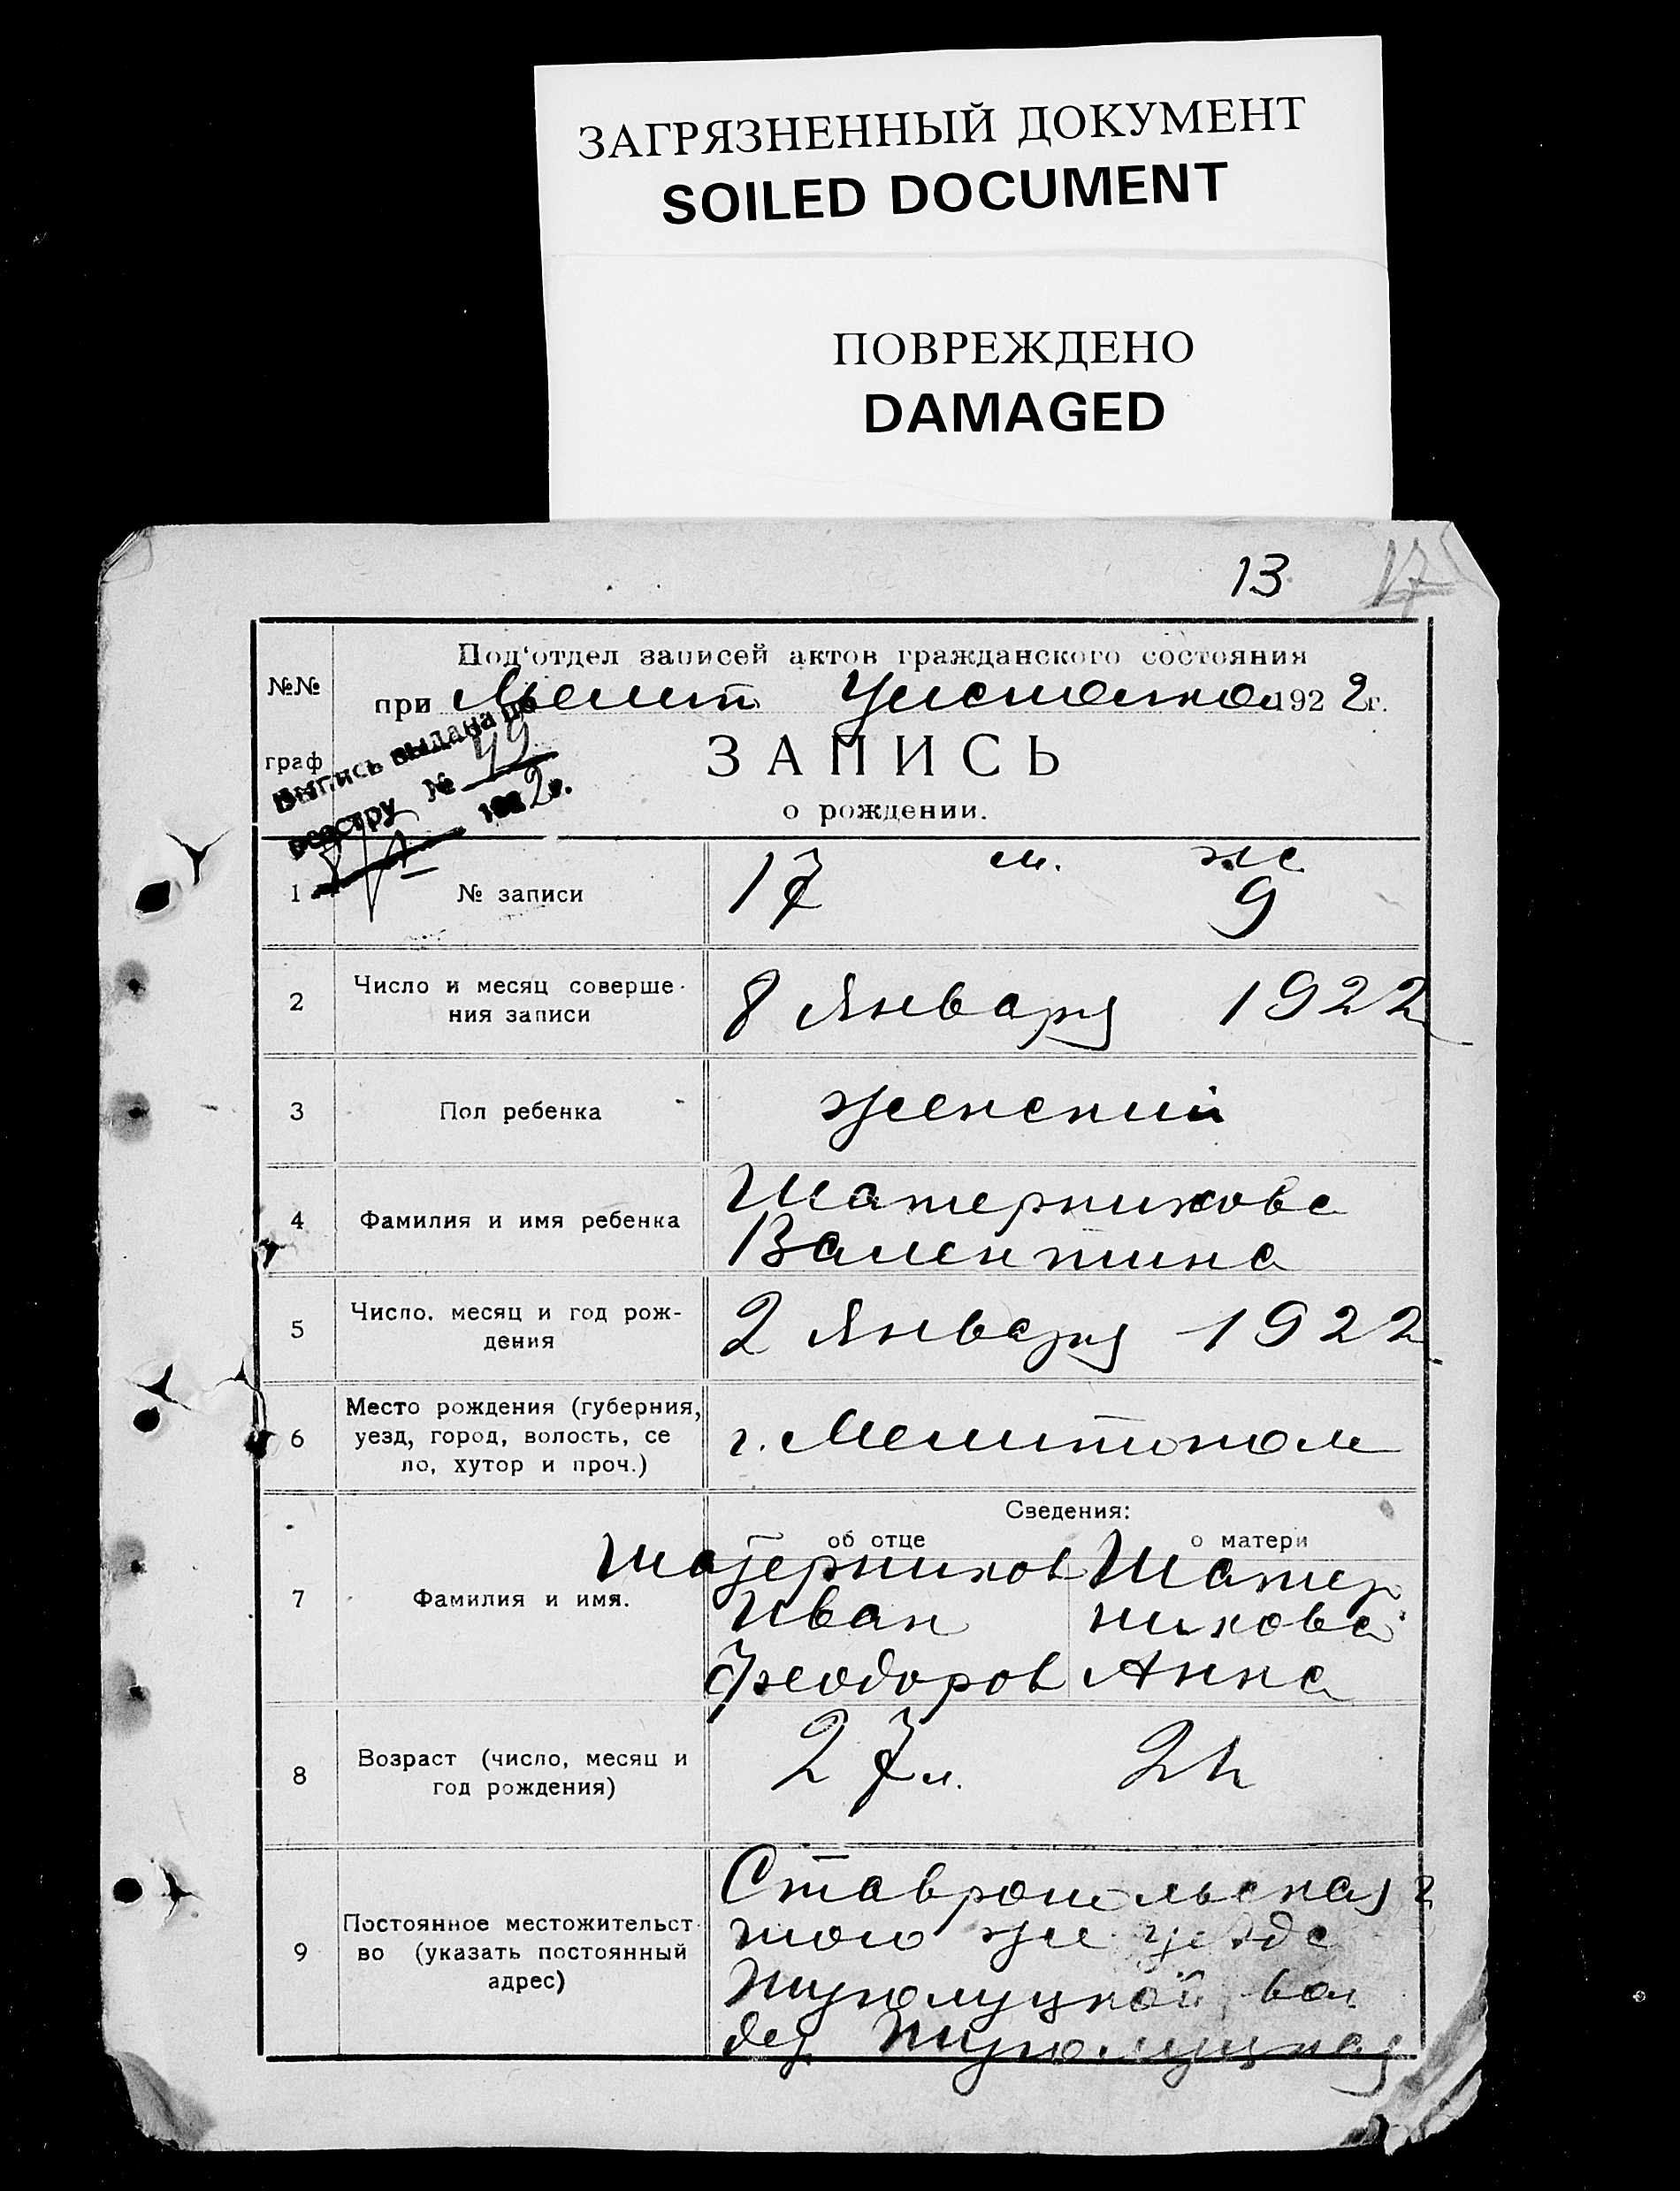 ЗАГРЯЗНЕННЫЙ ДОКУМЕНТ
SOILED DOCUMENT
ПОВРЕЖДЕНО
DAMAGED
13 17
№№
граф
Под‘отдел записей актов гражданского состояния
при Мелит 1922г.
Выпись выдана по
реестру № 49
1922г.
ЗАПИСЬ
о рождении.
м. ж
1 № записи 17 9
2 Число и месяц соверше-
ния записи
8 Января 1922
3 Пол ребенка женский
4 Фамилия и имя ребенка
Шатерникова
Валентина
5 Число, месяц и год рож-
дения
2 Января 1922
6 Место рождения (губерния,
уезд, город, волость, се
ло, хутор и проч.)
г. Мелитополь
Сведения:
об отце о матери
7 Фамилия и имя.
Шатерников Шатер
Иван никова
Феодоров Анна
8 Возраст (число, месяц и
год рождения)
27 л. 24
9 Постоянное местожительст-
во (указать постоянный
адрес)
Ставропольская г
того же уезда
вол
дер.